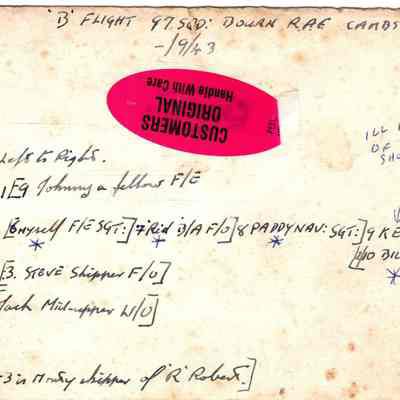 'B' FLIGHT 97 SQD: BOURN RAE CAMBS
-/9/43
CUSTOMERS
ORIGINAL
Handle With Care
ILL
OF
Left to Right.
1 Johnny a fellow F/E
[6 Myself F/E SGT:] 7 'Kid B/A F/O] 8 PADDY NAV: SGT:] 9 KE
10 BIL
[3. STEVE Skipper F/O]
Jack Mid-upper W/O]
3 is Monty skipper of 'R' Robert.]